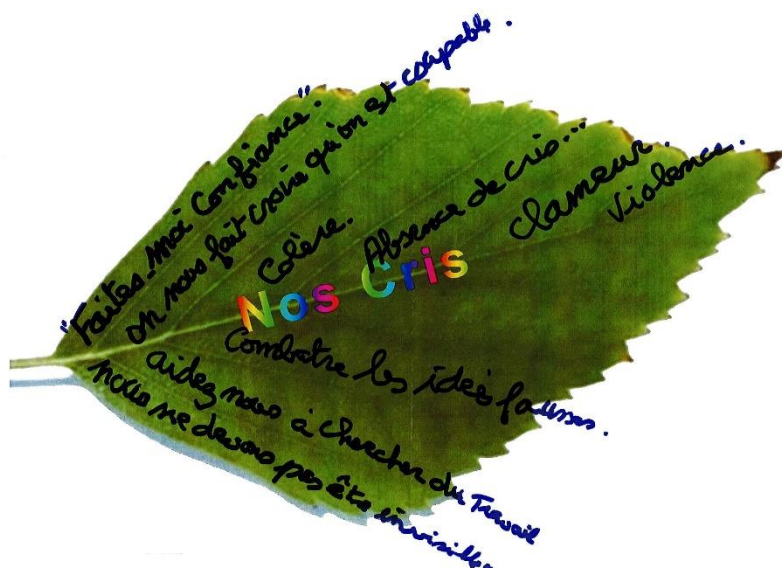 "Faites-moi Confiance".
on nous fait croire qu'on est coupable.
Colère.
Absence de cris...
Clameur.
Violence.
Nos Cris
Combatre les idées fausses.
aidez nous à chercher du Travail
nous ne devons pas être invisibles